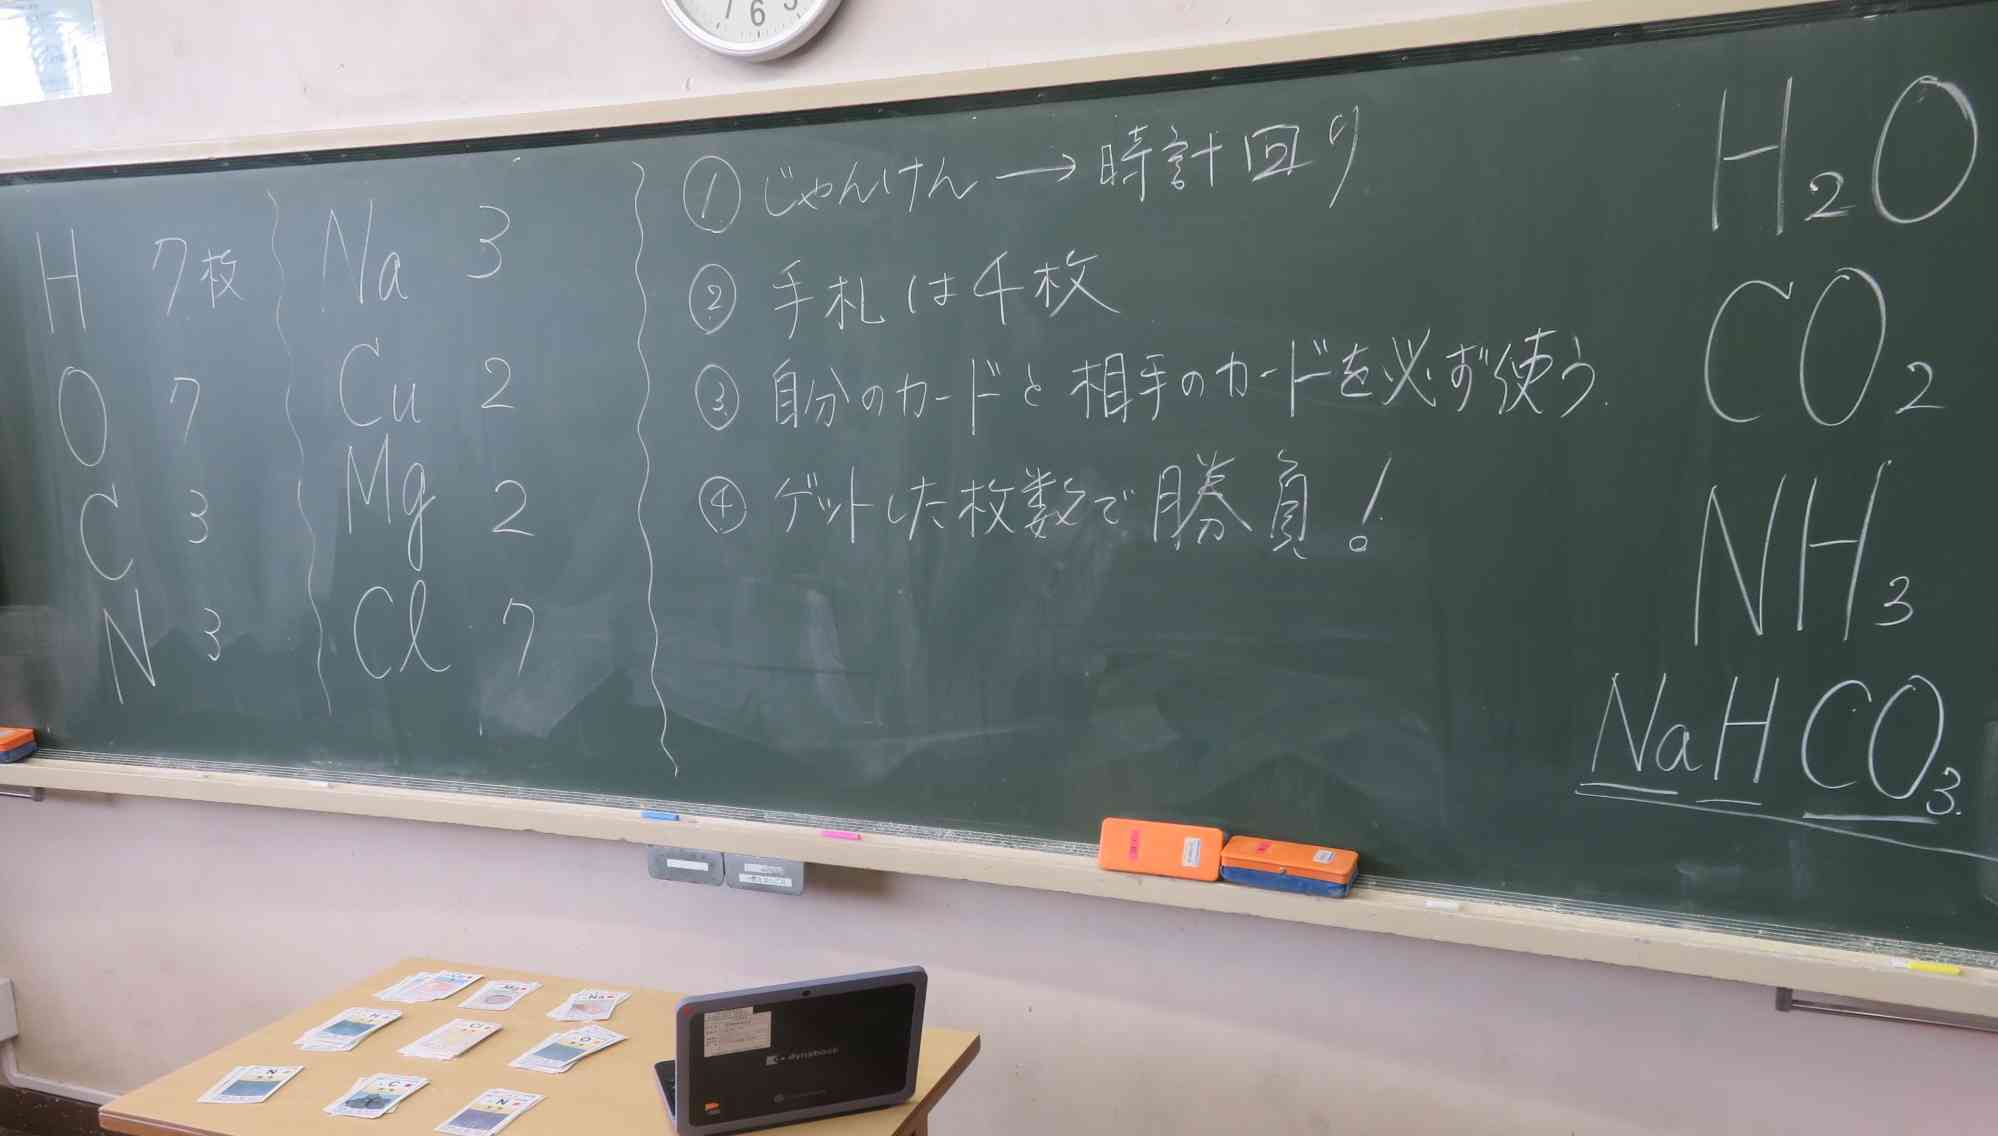 7 6 5
H 7枚
O 7
C 3
N 3
Na 3
Cu 2
Mg 2
Cl 7
① じゃんけん → 時計回り
② 手札は4枚
③ 自分のカードと相手のカードを必ず使う.
④ ゲットした枚数で勝負!
H₂O
CO₂
NH₃
NaHCO₃.
Mg
Na
H
Cl
O
N
C
N
dynabook